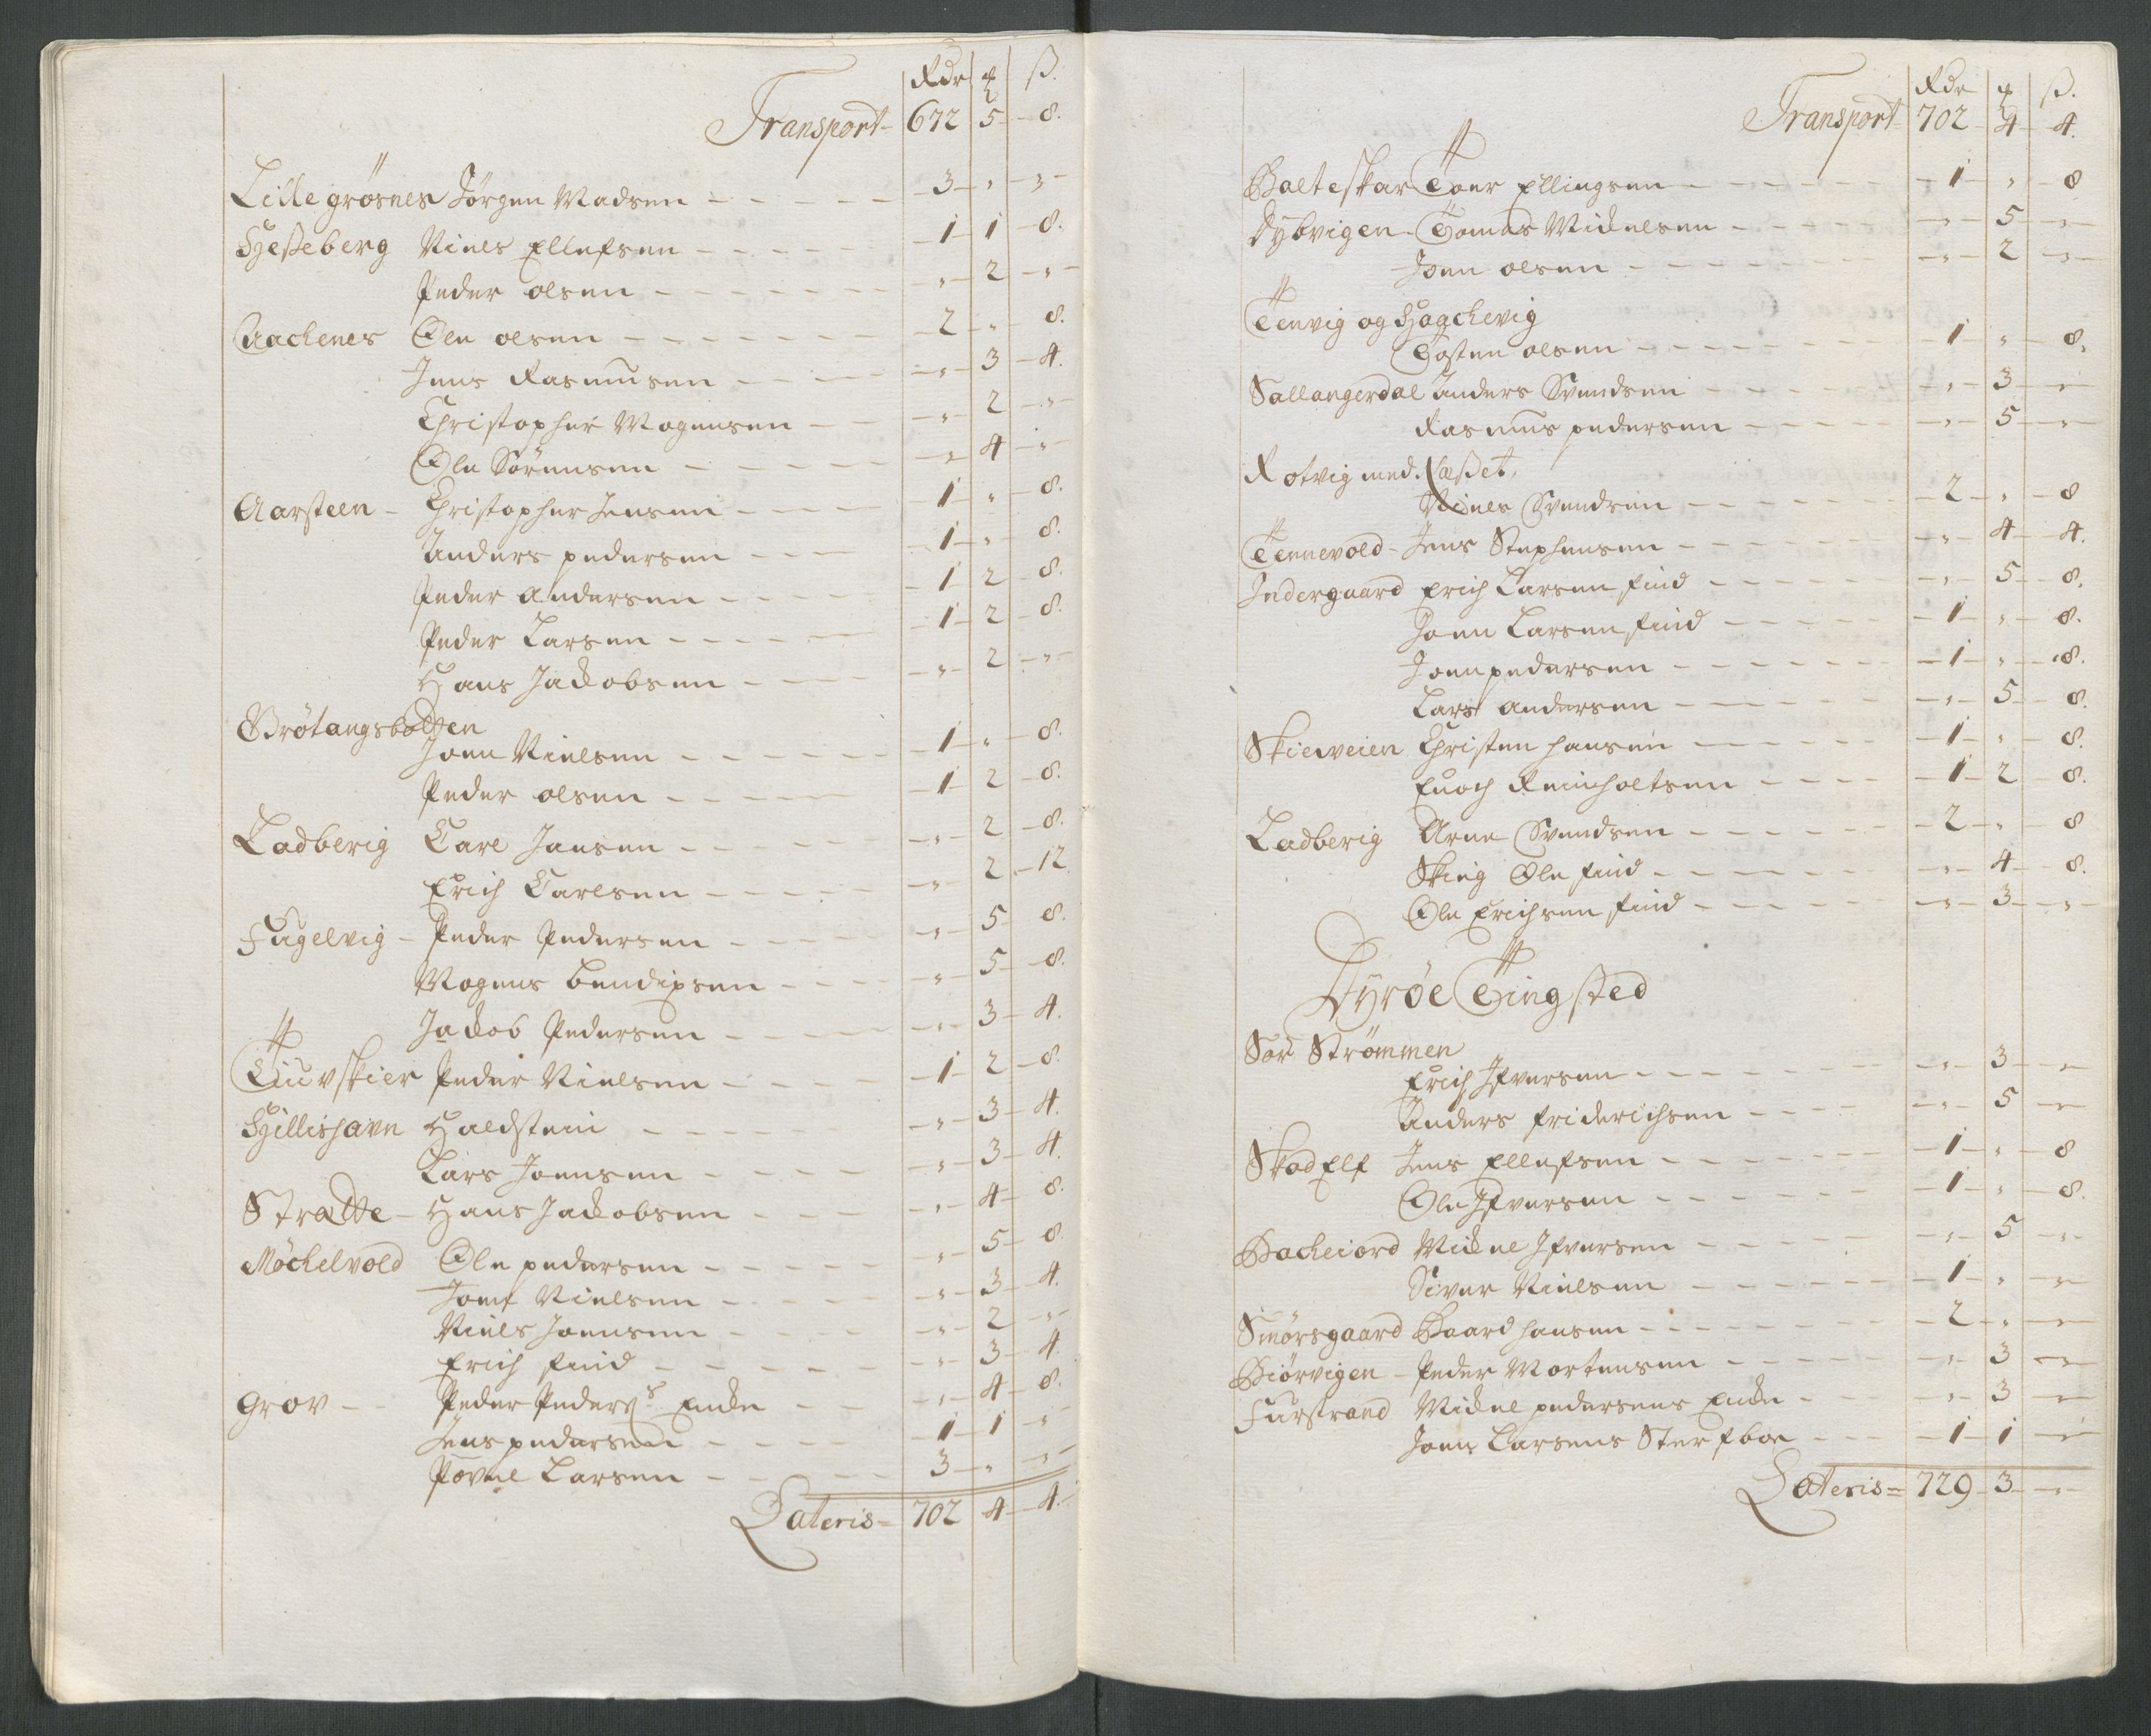 Rdr ₰ ß.
Transport- 672 5 - 8.
Lille grösnes Jörgen Madsen - 3 - " - 3 -
Hiesseberg Niels Ellefsen - 1 - 1 - 8.
Peder olsen - " - 2 - " -
Aachenes Ole olsen - 2 - " - 8.
Jens Rasmusen - " - 3 - 4.
Christopher Mogensen - " - 2 - " -
Ole Sörensen - " - 4 - " -
Aarsteen - Christopher Jensen - 1 - " - 8.
Anders pedersen - 1 - " - 8.
Peder Andersen - 1 - 2 - 8.
Peder Larsen - 1 - 2 - 8.
Hans Jackobsen - " - 2 - " -
Grötangsbotten
Joen Nielsen - 1 - " - 8.
Peder olsen - 1 - 2 - 8.
Ladberig Carl Jansen - " - 2 - 8.
Erich Carlsen - " - 2 - 12
Fugelvig - Peder Pedersen - " - 5 - 8.
Mogens bendixsen - " - 5 - 8.
Jackob Pedersen - " - 3 - 4.
Tiuvskier Peder Nielsen - 1 - 2 - 8.
Hillishavn Haldstein - " - 3 - 4.
Lars Joensen - " - 3 - 4.
Stratte - Hans Jackobsen - " - 4 - 8.
Möchelvold Ole pedersen - " - 5 - 8
Joen Nielsen - " - 3 - 4.
Niels Joensen - " - 2 - " -
Erich find - " - 3 - 4.
Grov - Peder Peders: Encke - " - 4 - 8.
Jens pedersen - 1 - 1 - "
Povel Larsen - 3 - " - "
Lateris = 702 4 - 4.
Rdr ₰ ß.
Transport 702 - 4 - 4.
Balteskar Toer Ellingsen - 1 - " - 8
Dybvigen - Tomas Mickelsen - " - 5 - " -
Joen olsen - " - 2 - " -
Tenvig og Hagchevig
Tosten olsen - 1 - " - 8.
Sallangerdal Anders Svendsen - " - 3 - "
Rasmus pedersen - " - 5 - " -
Rotvig med Læsset.
Niels Svendsen - 2 - " - 8
Tennevold - Jens Stephensen - " - 4 - 4.
Indergaard Erich Larsen find - " - 5 - 8.
Joen Larsen find - 1 - " - 8.
Joen pedersen - 1 - " - 8.
Lars Andersen - " - 5 - 8.
Skierveien Christen hansen - 1 - " - 8.
Enoch Reinholtsen - 1 - 2 - 8.
Ladberig Arne Svendsen - 2 - " - 8
Skieg Ole find - " - 4 - 8.
Ole Erichsen find - " - 3 - " -
Dyröe Tingsted
Sör Strömmen
Erich Ifversen - " - 3 - " -
Anders friderichsen - " - 5 - " -
Skod Elf Jens Ellefsen - 1 - " - 8
Ole Ifversen - 1 - " - 8.
Bacheiord Mickel Ifversen - " - 5 - " -
Siver Nielsen - 1 - " - " -
Smörsgaard Baard hansen - 2 - " - " -
Biörvigen - Peder Mortensen - " - 3 - " -
Furstrand Mickel pedersens Encke - " - 3 - " -
Joen Larsens Sterfboe - 1 - 1 - " -
Lateris = 729 - 3 - " -